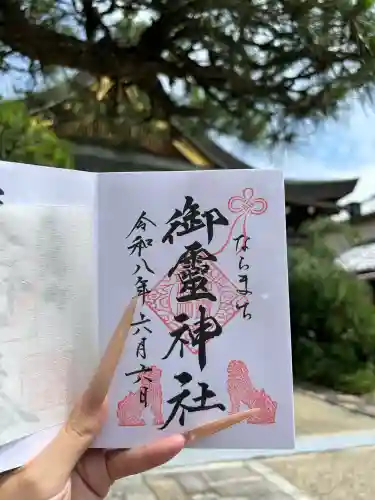 ならまち
御霊神社
令和八年六月六日